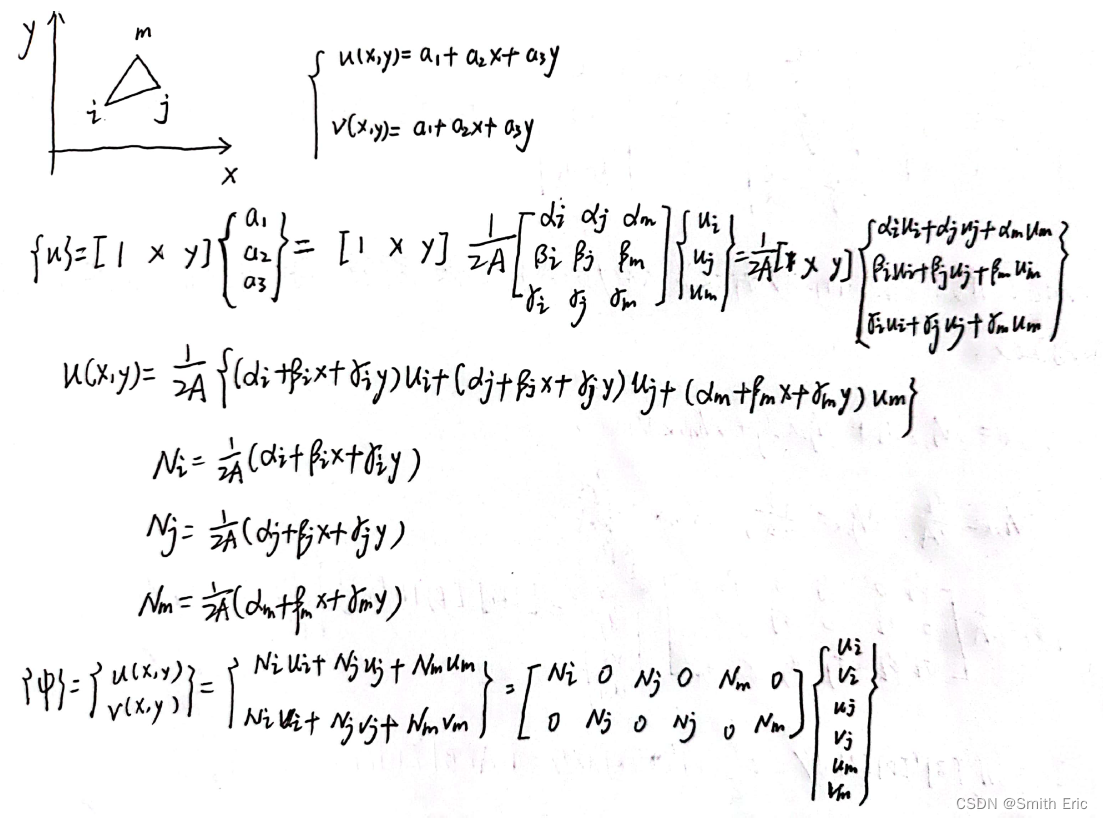 y
m
i
j
x
u(x,y)= a₁+ a₂x+ a₃y
v(x,y)= a₁+a₂x+ a₃y
{u}=[1 x y]{a₁ a₂ a₃}= [1 x y] 1/2A [αi αj αm βi βj βm γi γj γm]{ui uj um}=1/2A[1 x y]{αiui+αjuj+αmum βiui+βjuj+βmum γiui+γjuj+γmum}
u(x,y)= 1/2A {(αi+βix+γiy)ui+(αj+βjx+γjy)uj+(αm+βmx+γmy)um}
Ni= 1/2A(αi+βix+γiy)
Nj= 1/2A(αj+βjx+γjy)
Nm= 1/2A(αm+βmx+γmy)
{ψ}={u(x,y) v(x,y)}={Niui+Njuj+Nmum Nivi+Njvj+Nmvm}=[Ni 0 Nj 0 Nm 0 0 Nj 0 Nj 0 Nm]{ui vi uj vj um vm}
CSDN @Smith Eric